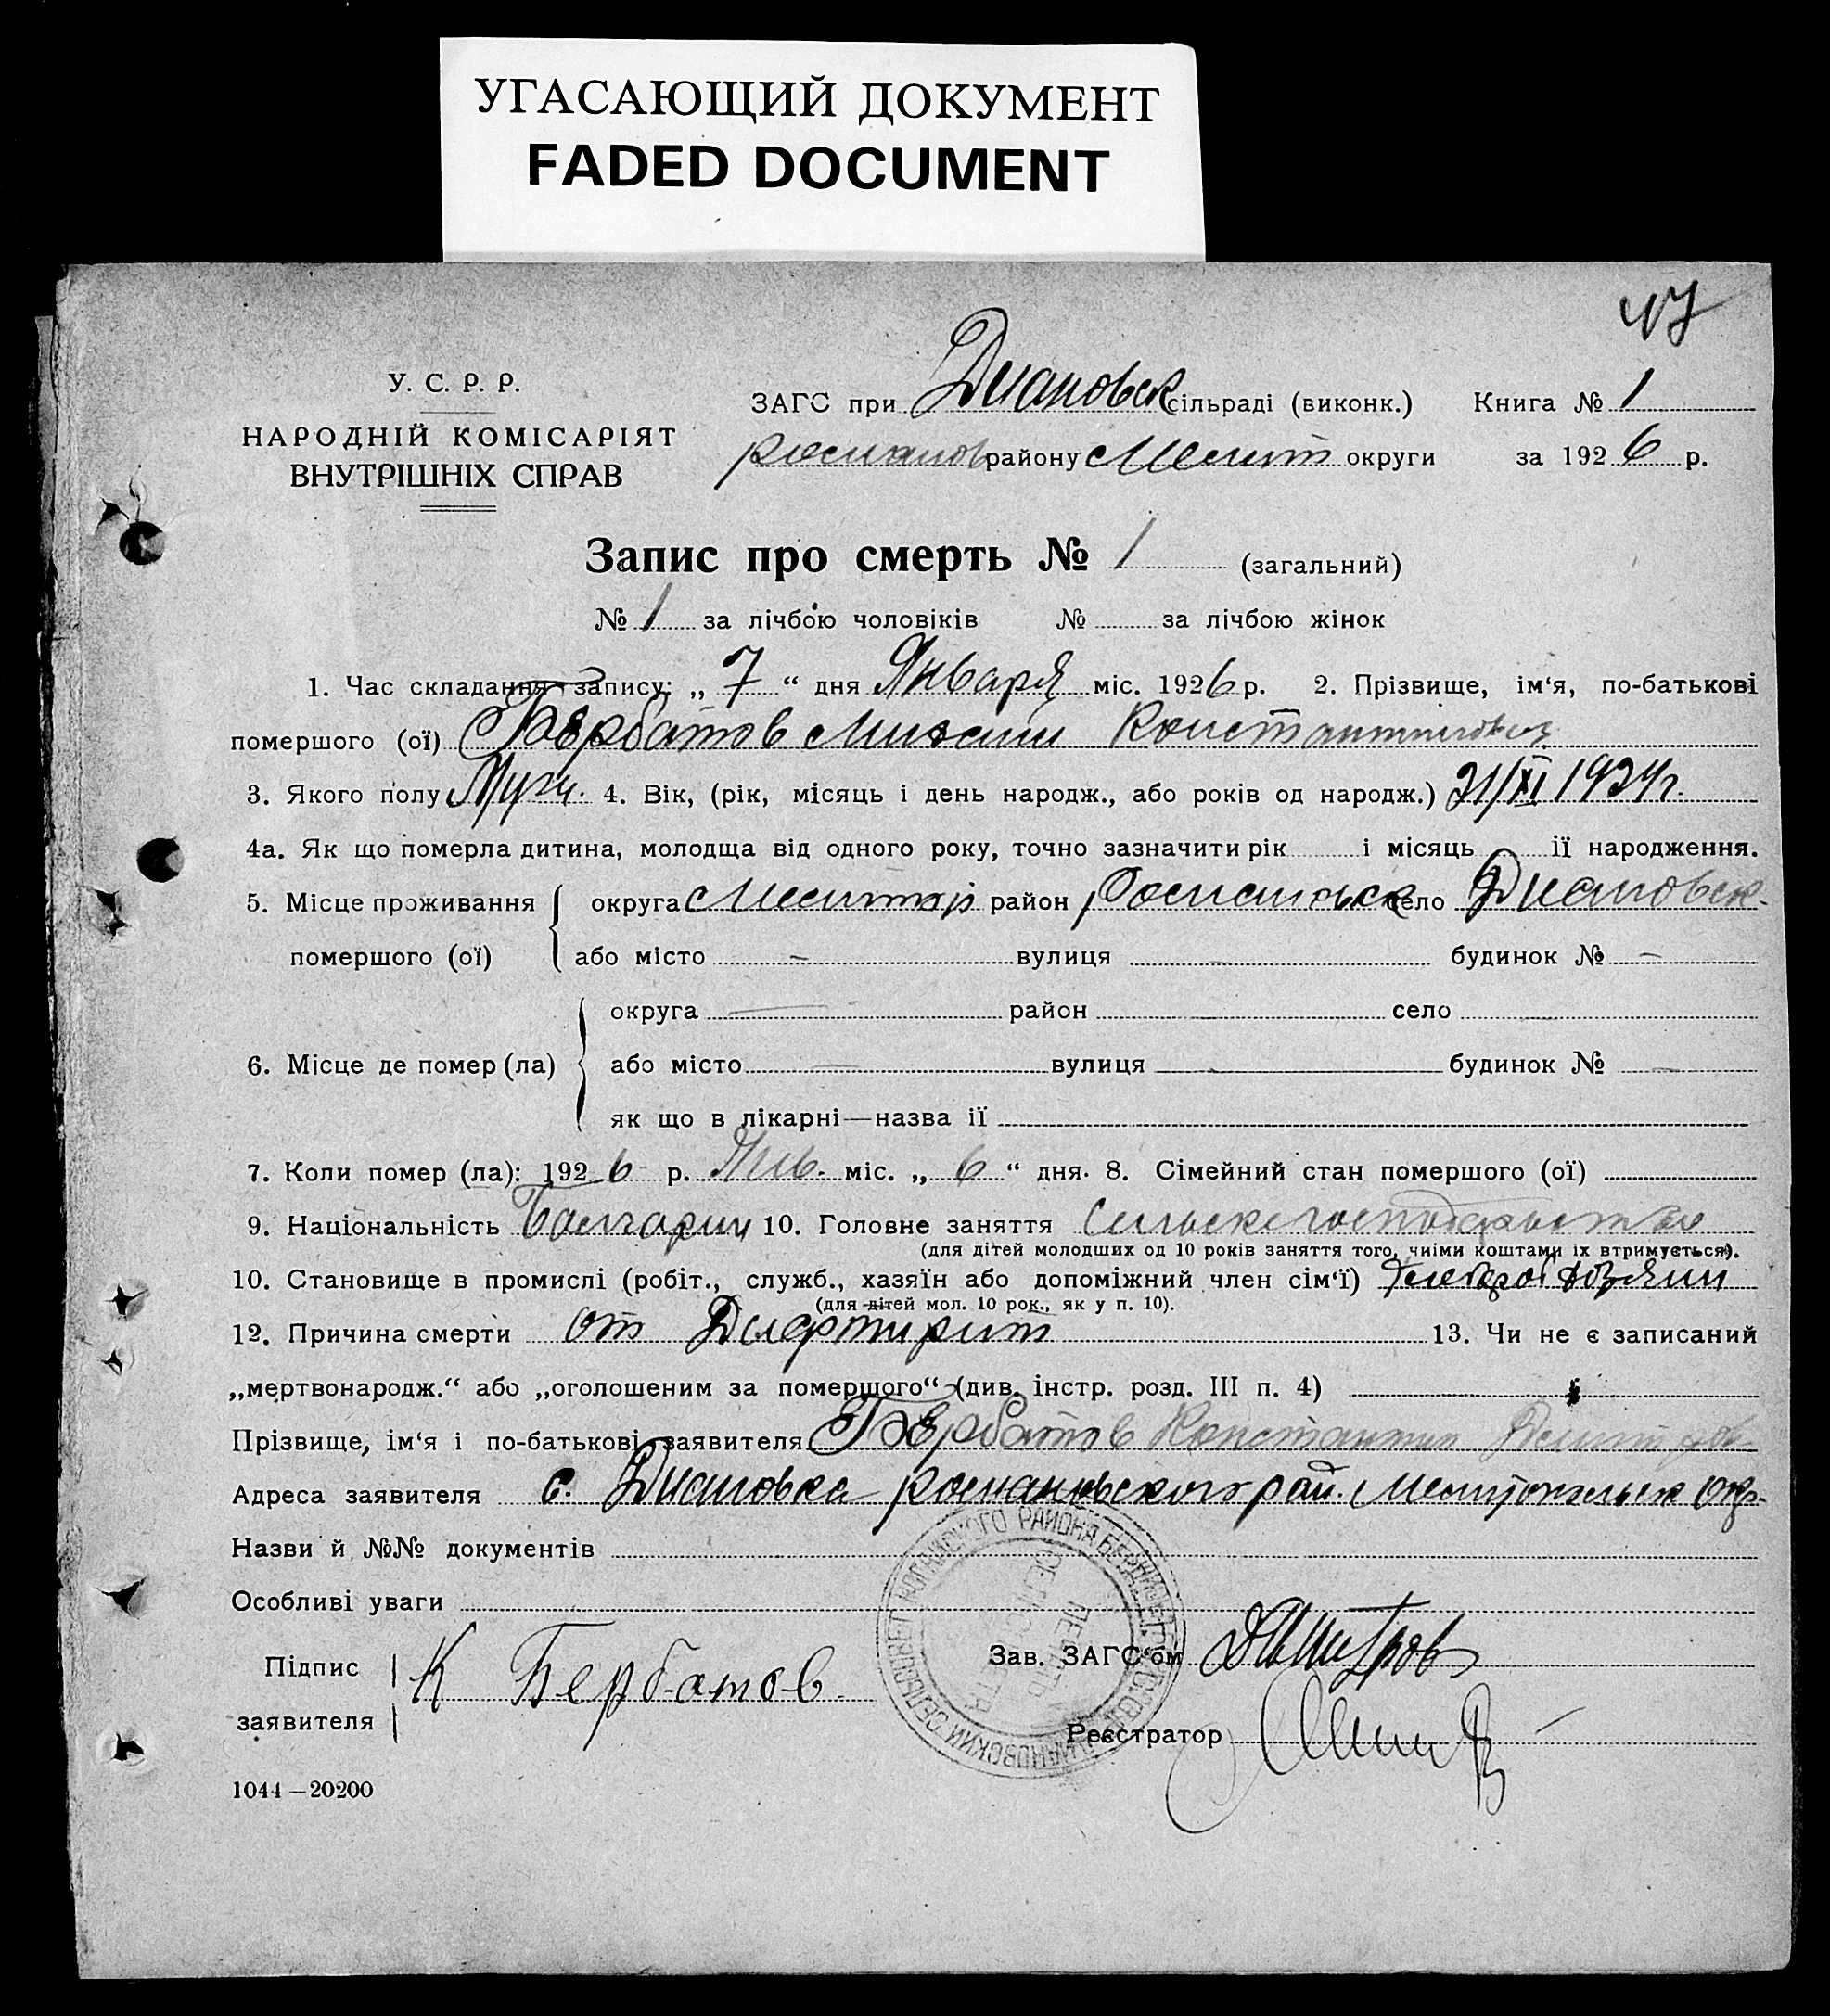 УГАСАЮЩИЙ ДОКУМЕНТ
FADED DOCUMENT
47
У. С. Р. Р.
НАРОДНІЙ КОМІСАРІЯТ
ВНУТРІШНІХ СПРАВ
ЗАГС при Диановск сільраді (виконк.) Книга № 1
району Мелит округи за 1926 р.
Запис про смерть № 1 (загальний)
№ 1 за лічбою чоловіків № за лічбою жінок
1. Час складання запису: „ 7 “ дня Января міс. 1926 р. 2. Прізвище, ім‘я, по-батькові
помершого (ої) Бербатов Михаил Константинович
3. Якого полу Мужч. 4. Вік, (рік, місяць і день народж., або років од народж.) 21/XI 1924 г.
4а. Як що померла дитина, молодща від одного року, точно зазначити рік і місяць її народження.
5. Місце проживання помершого (ої) округа район село Диановск.
або місто – вулиця – будинок № –
6. Місце де помер (ла) округа — район — село
або місто — вулиця – будинок № –
як що в лікарні—назва її
7. Коли помер (ла): 1926 р. Янв. міс. „ 6 “ дня. 8. Сімейний стан помершого (ої)
9. Національність Болгарин 10. Головне заняття
(для дітей молодших од 10 років заняття того, чиїми коштами їх втримується).
10. Становище в промислі (робіт., служб., хазяїн або допоміжний член сім‘ї)
(для дітей мол. 10 рок., як у п. 10).
12. Причина смерти от Дифтирит 13. Чи не є записаний
„мертвонародж.“ або „оголошеним за помершого“ (див. інстр. розд. III п. 4)
Прізвище, ім‘я і по-батькові заявителя Бербатов Константин
Адреса заявителя с. Диановка рай. Мелитопольск окр.
Назви й №№ документів
Особливі уваги
Підпис заявителя К Бербатов.
Зав. ЗАГС‘ом Димитров
Реєстратор
1044—20200